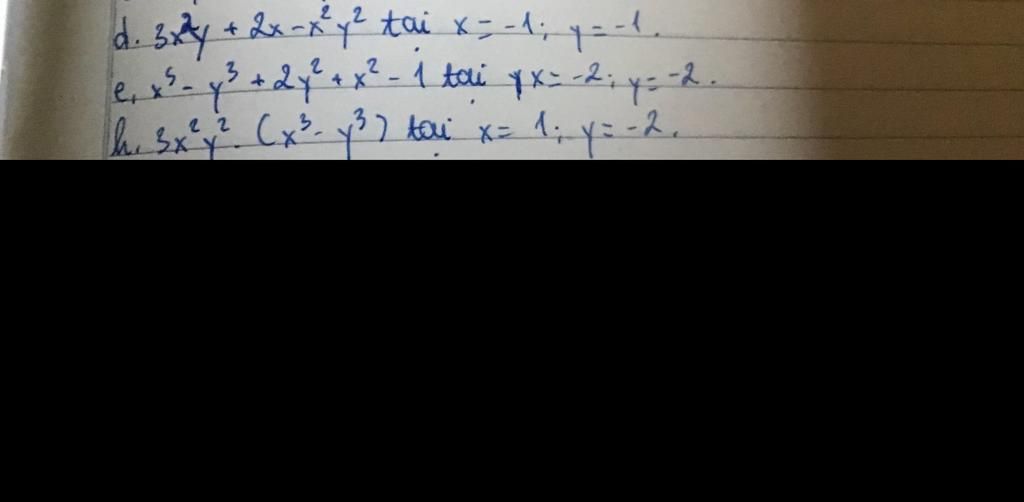 d. 3x²y + 2x - x²y² tại x = -1; y = -1.
e, x⁵ - y³ + 2y² + x² - 1 tại x = -2; y = -2.
h. 3x²y². (x³ - y³) tại x = 1; y = -2.